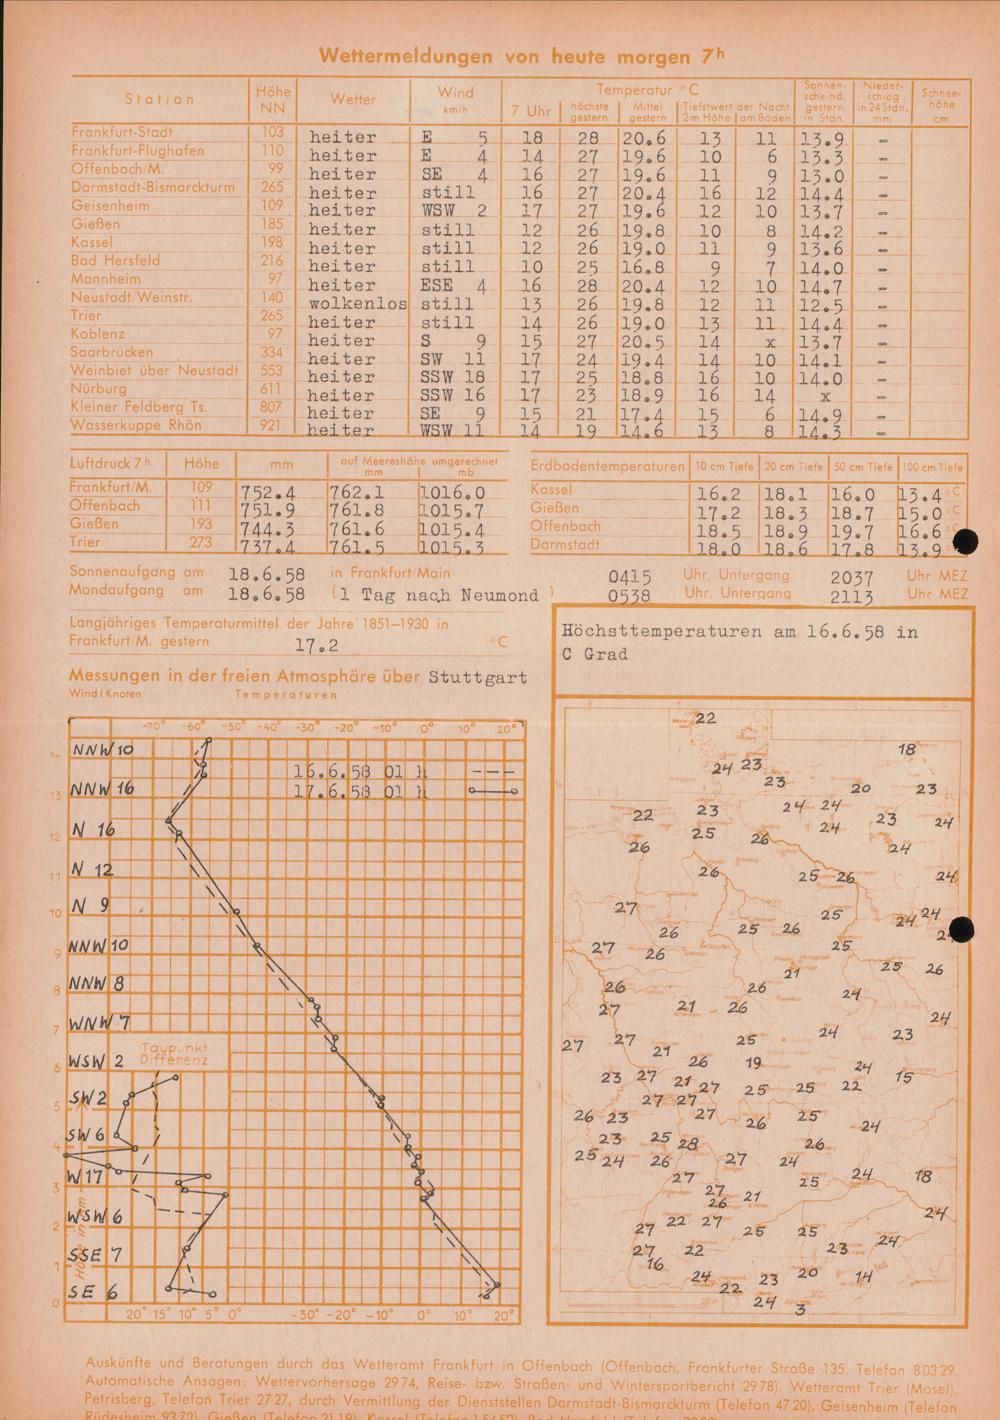 Wettermeldungen von heute morgen 7h
Station Höhe NN Wetter Wind km/h Temperatur °C 7 Uhr höchste gestern Mittel gestern Tiefstwert der Nacht 2m Höhe am Boden Sonnen-scheind. gestern in Stdn. Nieder-schlag in 24 Stdn. mm Schnee-höhe cm
Frankfurt-Stadt 103 heiter E 5 18 28 20.6 13 11 13.9 -
Frankfurt-Flughafen 110 heiter E 4 14 27 19.6 10 6 13.3 -
Offenbach/M. 99 heiter SE 4 16 27 19.6 11 9 13.0 -
Darmstadt-Bismarckturm 265 heiter still 16 27 20.4 16 12 14.4 -
Geisenheim 109 heiter WSW 2 17 27 19.6 12 10 13.7 -
Gießen 185 heiter still 12 26 19.8 10 8 14.2 -
Kassel 198 heiter still 12 26 19.0 11 9 13.6 -
Bad Hersfeld 216 heiter still 10 25 16.8 9 7 14.0 -
Mannheim 97 heiter ESE 4 16 28 20.4 12 10 14.7 -
Neustadt/Weinstr. 140 wolkenlos still 13 26 19.8 12 11 12.5 -
Trier 265 heiter still 14 26 19.0 13 11 14.4 -
Koblenz 97 heiter S 9 15 27 20.5 14 x 13.7 -
Saarbrücken 334 heiter SW 11 17 24 19.4 14 10 14.1 -
Weinbiet über Neustadt 553 heiter SSW 18 17 25 18.8 16 10 14.0 -
Nürburg 611 heiter SSW 16 17 23 18.9 16 14 x -
Kleiner Feldberg Ts. 807 heiter SE 9 15 21 17.4 15 6 14.9 -
Wasserkuppe Rhön 921 heiter WSW 11 14 19 14.6 13 8 14.3 -
Luftdruck 7h Höhe mm auf Meereshöhe umgerechnet mm mb
Frankfurt/M. 109 752.4 762.1 1016.0
Offenbach 111 751.9 761.8 1015.7
Gießen 193 744.3 761.6 1015.4
Trier 273 737.4 761.5 1015.3
Erdbodentemperaturen 10 cm Tiefe 20 cm Tiefe 50 cm Tiefe 100 cm Tiefe
Kassel 16.2 18.1 16.0 13.4 °C
Gießen 17.2 18.3 18.7 15.0 °C
Offenbach 18.5 18.9 19.7 16.6 °C
Darmstadt 18.0 18.6 17.8 13.9 °C
Sonnenaufgang am 18.6.58 in Frankfurt/Main 0415 Uhr, Untergang 2037 Uhr MEZ
Mondaufgang am 18.6.58 (1 Tag nach Neumond ) 0538 Uhr, Untergang 2113 Uhr MEZ
Langjähriges Temperaturmittel der Jahre 1851–1930 in
Frankfurt/M. gestern 17.2 °C
Messungen in der freien Atmosphäre über Stuttgart
Wind/Knoten Temperaturen
-70° -60° -50° -40° -30° -20° -10° 0° 10° 20°
14 NNW 10
16.6.58 01 h
17.6.58 01 h
13 NNW 16
12 N 16
11 N 12
10 N 9
9 NNW 10
8 NNW 8
7 WNW 7
Taupunkt
Differenz
6 WSW 2
5 SW 2
4 SW 6
3 W 17
2 WSW 6
1 SSE 7
0 SE 6
Höhe in km
20° 15° 10° 5° 0° -30° -20° -10° 0° 10° 20°
Höchsttemperaturen am 16.6.58 in
C Grad
22
18
24 23
23 20 23
22 23 24 24 23 24
26 25 26 24 24
26 25 26 24
27 25 24 24
26 25 26 24
27 26 25
21 25 26
26 26 24
27 21 26 24
27 27 25 24 23
21 26 19 24
23 27 21 27 25 25 22 15
27 27
26 23 27 26 25 24
23 25 28 26
25 24 26 27 24
27 25 24 18
27 26 21
27 22 27 25 25 24
27 22 23 24
16 24 23 20 14
22
24 3
Auskünfte und Beratungen durch das Wetteramt Frankfurt in Offenbach (Offenbach, Frankfurter Straße 135, Telefon 80329.
Automatische Ansagen: Wettervorhersage 2974, Reise- bzw. Straßen- und Wintersportbericht 2978). Wetteramt Trier (Mosel),
Petrisberg, Telefon Trier 2727, durch Vermittlung der Dienststellen Darmstadt-Bismarckturm (Telefon 4720), Geisenheim (Telefon
Rüdesheim 9372), Gießen (Telefon 2119), Kassel (Telefon